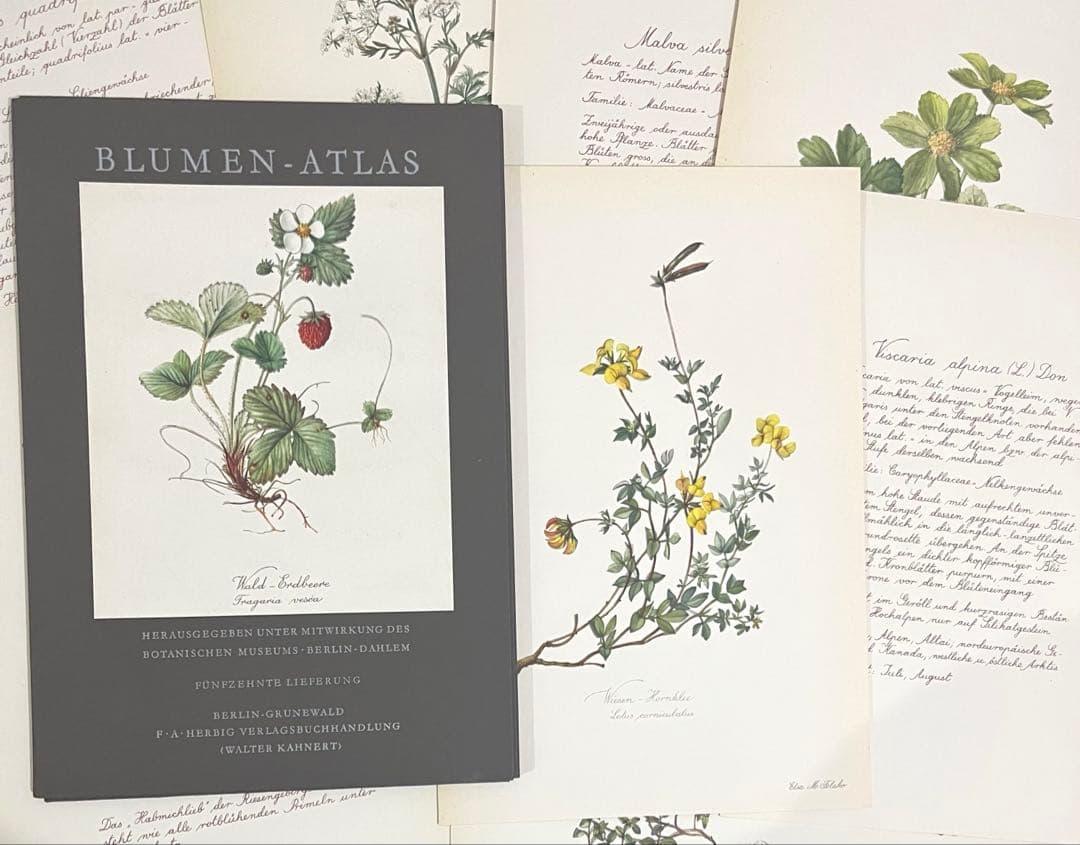 quadrif
scheinlich von lat. par - gle
Gleichzahl (Vierzahl) der Blätter
nteile; quadrifolius lat. = vier-
Liliengewächse
kriechender
Malva silve
Malva - lat. Name der
ten Römern; silvestris
Familie: Malvaceae -
Zweijährige oder ausda
hohe Pflanze. Blätter
Blüten gross, die an d
BLUMEN-ATLAS
Wald-Erdbeere
Fragaria vesca
HERAUSGEGEBEN UNTER MITWIRKUNG DES
BOTANISCHEN MUSEUMS · BERLIN-DAHLEM
FÜNFZEHNTE LIEFERUNG
BERLIN-GRUNEWALD
F · A · HERBIG VERLAGSBUCHHANDLUNG
(WALTER KAHNERT)
Wiesen-Hornklee
Lotus corniculatus
Viscaria alpina (L.) Don
caria von lat. viscus = Vogelleim, wege
dunklen, klebrigen Ringe, die bei V
garis unter den Stengelknoten vorhander
t, bei der vorliegenden Art aber fehlen
nus lat. - in den Alpen bzw. der alpi-
Stufe derselben wachsend
lie: Caryophyllaceae - Nelkengewächse
m hohe Staude mit aufrechtem unver-
tem Stengel, dessen gegenständige Blät-
lmählich in die länglich-lanzettlichen
undrosette übergehen. An der Spitze
ngels ein dichter kopfförmiger Blü-
d. Kronblätter purpurn, mit einer
rone vor dem Blüteneingang
t im Geröll und kurzrasigen Bestän
Hochalpen nur auf Silikatgestein
, Alpen, Altai, nordeuropäische Ge-
d Kanada, westliche u. östliche Arktis
t: Juli, August
Das "Habmichlieb" der Riesengebirg
steht wie alle rotblühenden Primeln unter